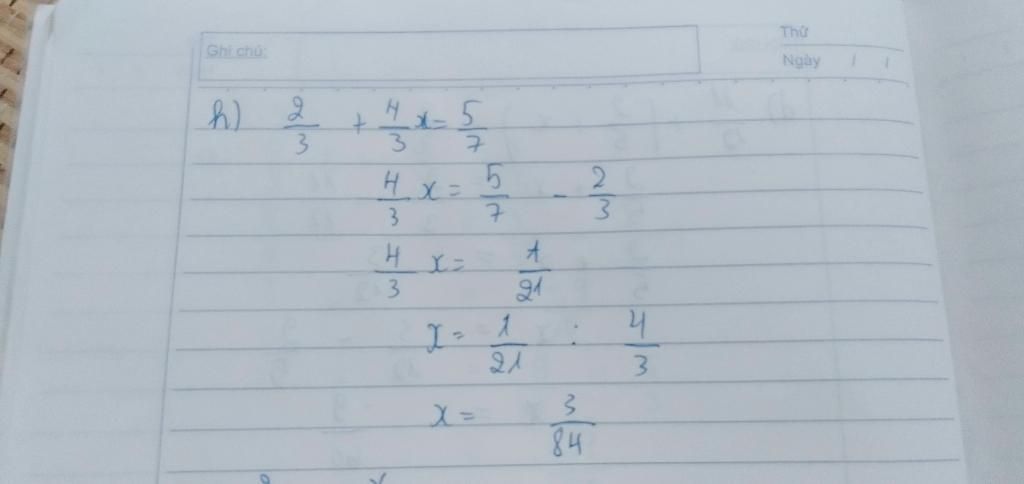 Ghi chú:
Thứ
Ngày / /
h) 2/3 + 4/3 x = 5/7
4/3 x = 5/7 - 2/3
4/3 x = 1/21
x = 1/21 : 4/3
x = 3/84